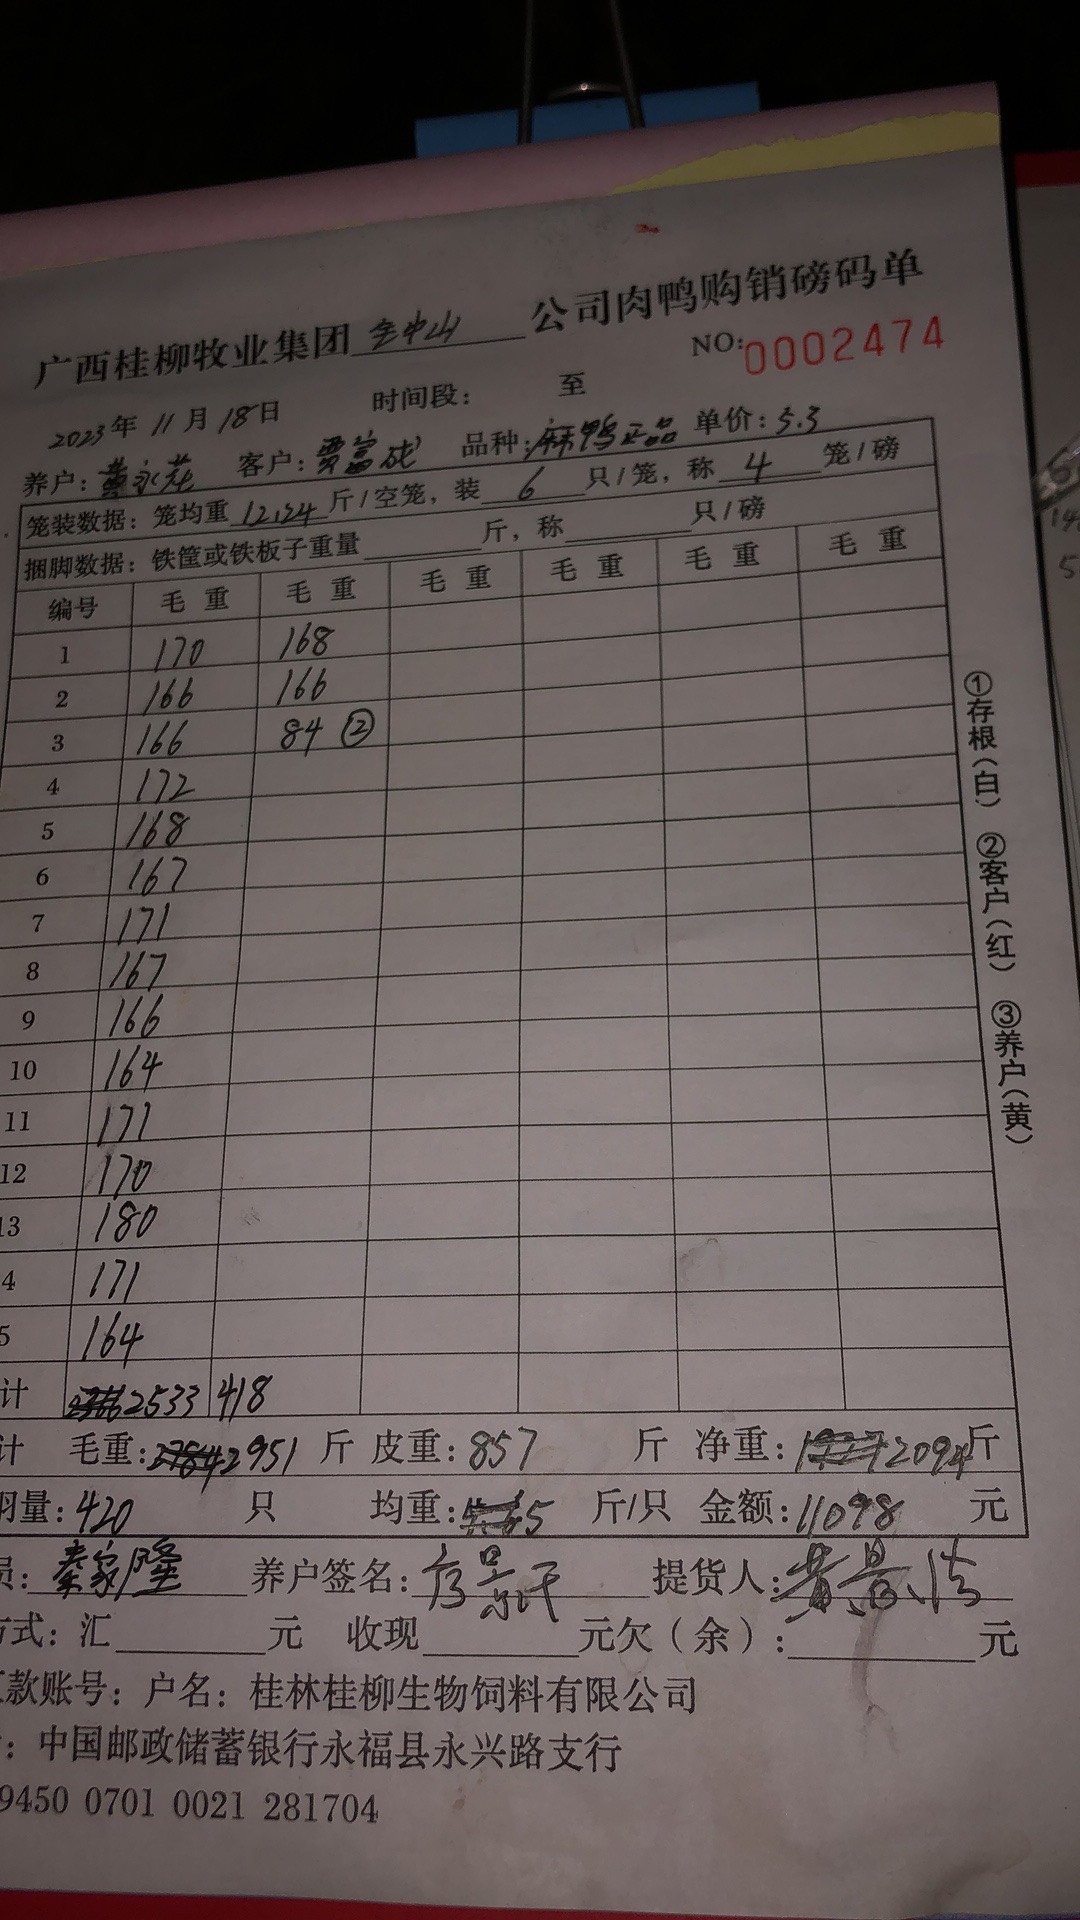 广西桂柳牧业集团金中山公司肉鸭购销磅码单
NO:0002474
2023年 11月 18日 时间段: 至
养户:黄永花 客户:贾富成 品种:麻鸭正品 单价:5.3
笼装数据:笼均重12.24斤/空笼,装6只/笼,称4笼/磅
捆脚数据:铁筐或铁板子重量 斤,称 只/磅
编号 毛重 毛重 毛重 毛重 毛重 毛重
1 170 168
2 166 166
3 166 84 ②
4 172
5 168
6 167
7 171
8 167
9 166
10 164
11 171
12 170
13 180
4 171
5 164
计 2533 418
计 毛重:2951 斤 皮重:857 斤 净重:2094斤
羽量:420 只 均重:5 斤/只 金额:11098 元
员:秦家隆 养户签名: 提货人:黄
方式:汇 元 收现 元欠(余): 元
汇款账号:户名:桂林桂柳生物饲料有限公司
:中国邮政储蓄银行永福县永兴路支行
9450 0701 0021 281704
①存根(白) ②客户(红) ③养户(黄)
14
5